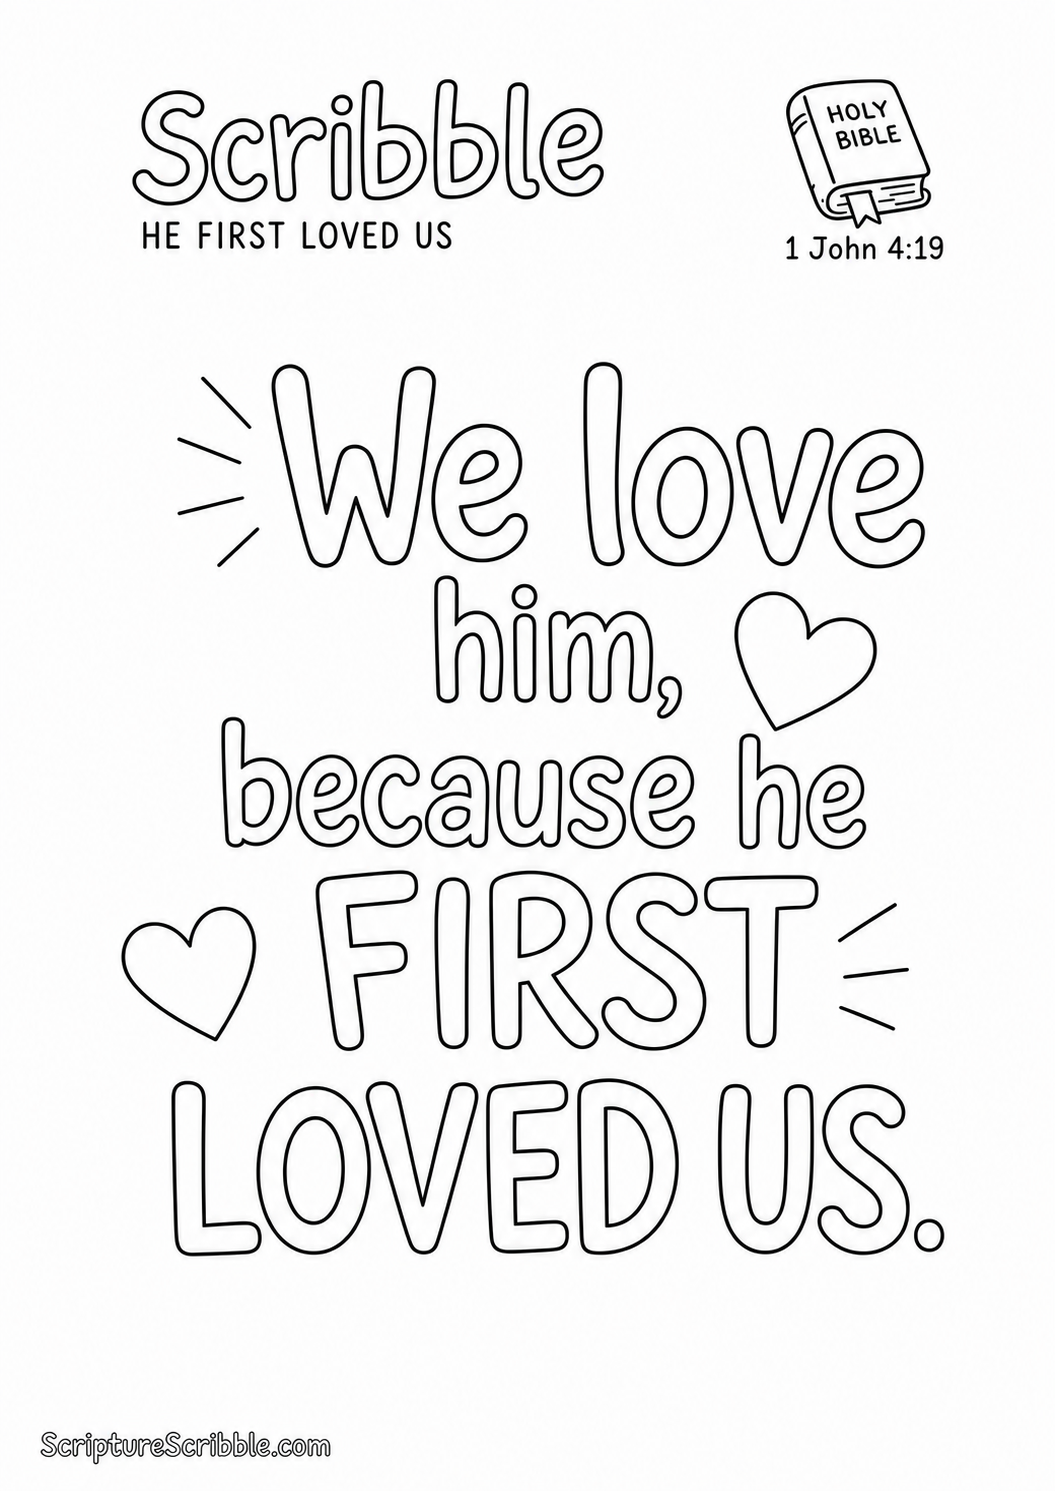 Scribble
HE FIRST LOVED US
HOLY
BIBLE
1 John 4:19
We love
him,
because he
FIRST
LOVED US.
ScriptureScribble.com